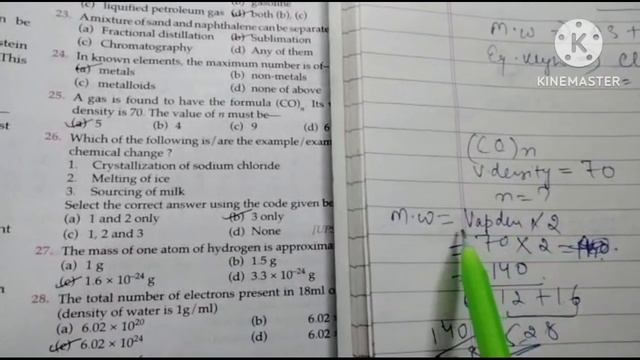 (c) liquified petroleum gas (d) both (b), (c)
23. A mixture of sand and naphthalene can be separate
(a) Fractional distillation (b) Sublimation
(c) Chromatography (d) Any of them
24. In known elements, the maximum number is of—
(a) metals (b) non-metals
(c) metalloids (d) none of above
25. A gas is found to have the formula (CO)n. Its
density is 70. The value of n must be—
(a) 5 (b) 4 (c) 9 (d) 6
26. Which of the following is/are the example/exam
chemical change ?
1. Crystallization of sodium chloride
2. Melting of ice
3. Sourcing of milk
Select the correct answer using the code given be
(a) 1 and 2 only (b) 3 only
(c) 1, 2 and 3 (d) None [UPS
27. The mass of one atom of hydrogen is approxima
(a) 1 g (b) 1.5 g
(c) 1.6 × 10⁻²⁴ g (d) 3.3 × 10⁻²⁴ g
28. The total number of electrons present in 18ml o
(density of water is 1g/ml)
(a) 6.02 × 10²⁰ (b) 6.02
(c) 6.02 × 10²⁴ (d) 6.02
n be
stein
This
M.W
KINEMASTER
(CO)n
V density = 70
n = ?
M.W = Vapden × 2
= 70 × 2 =
= 140
12 + 16
28